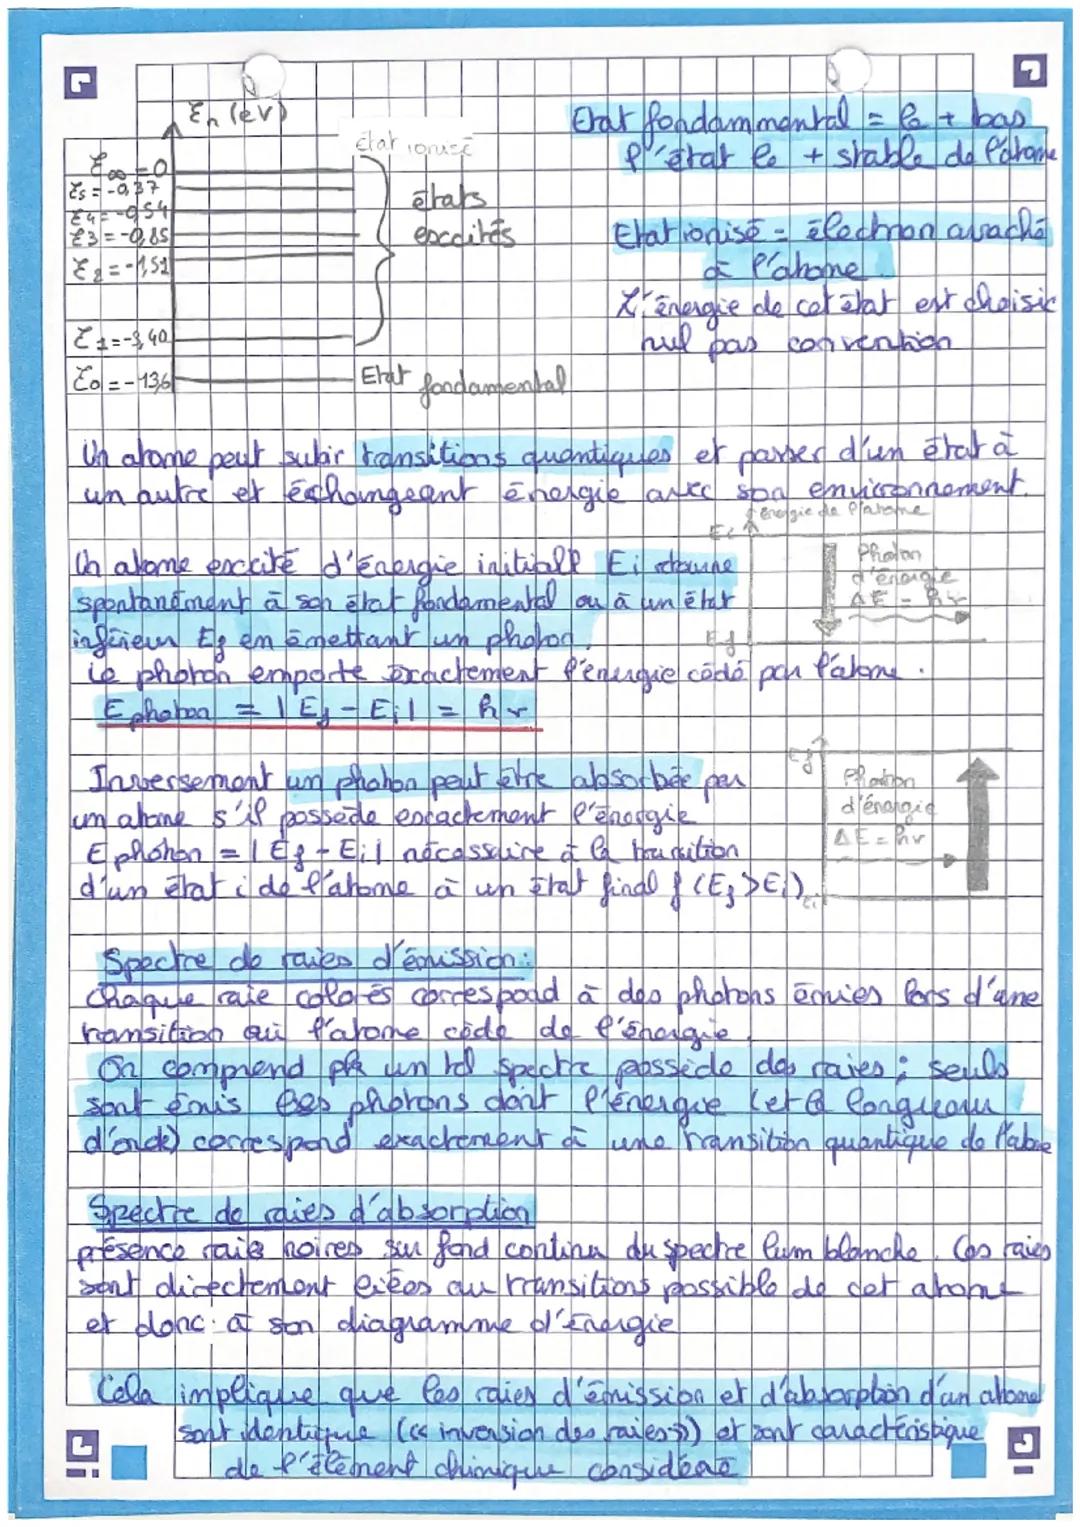 En (eV)
Etat fondammental = le + bas
l'état le + stable de l'atome
Etat ionisé
E∞ = 0
E5 = -0,37
E4 = -0,54
E3 = -0,85
E2 = -1,51
E1 = -3,40
E0 = -13,6
états
excités
Etat fondamental
Etat ionisé = électron arraché
à l'atome
L'énergie de cet état est choisie
nul par convention
Un atome peut subir transitions quantiques et passer d'un état à
un autre et échangeant énergie avec son environnement.
énergie de l'atome
Ei
Photon
d'énergie
ΔE = hν
Ef
Un atome excité d'énergie initiale Ei
spontanément à son état fondamental ou à un état
inférieur Ef en émettant un photon.
Le photon emporte exactement l'énergie cédé par l'atome.
Ephoton = |Ef - Ei| = hν
Ef
Photon
d'énergie
ΔE = hν
Ei
Inversement un photon peut être absorbée par
un atome s'il possède exactement l'énergie
Ephoton = |Ef - Ei| nécessaire à la transition
d'un état i de l'atome à un état final f (Ef > Ei)
Spectre de raies d'émission :
Chaque raie colorés correspond à des photons émies lors d'une
transition qui l'atome cède de l'énergie.
On comprend pk un tel spectre possède des raies ; seuls
sont émis les photons dont l'énergie (et la longueur
d'onde) correspond exactement à une transition quantique de l'atome
Spectre de raies d'absorption
présence raies noires sur fond continu du spectre lum blanche. Ces raies
sont directement liées au transitions possible de cet atome
et donc à son diagramme d'énergie
Cela implique que les raies d'émission et d'absorption d'un atome
sont identique (« inversion des raies ») et sont caractéristique
de l'élément chimique considéré